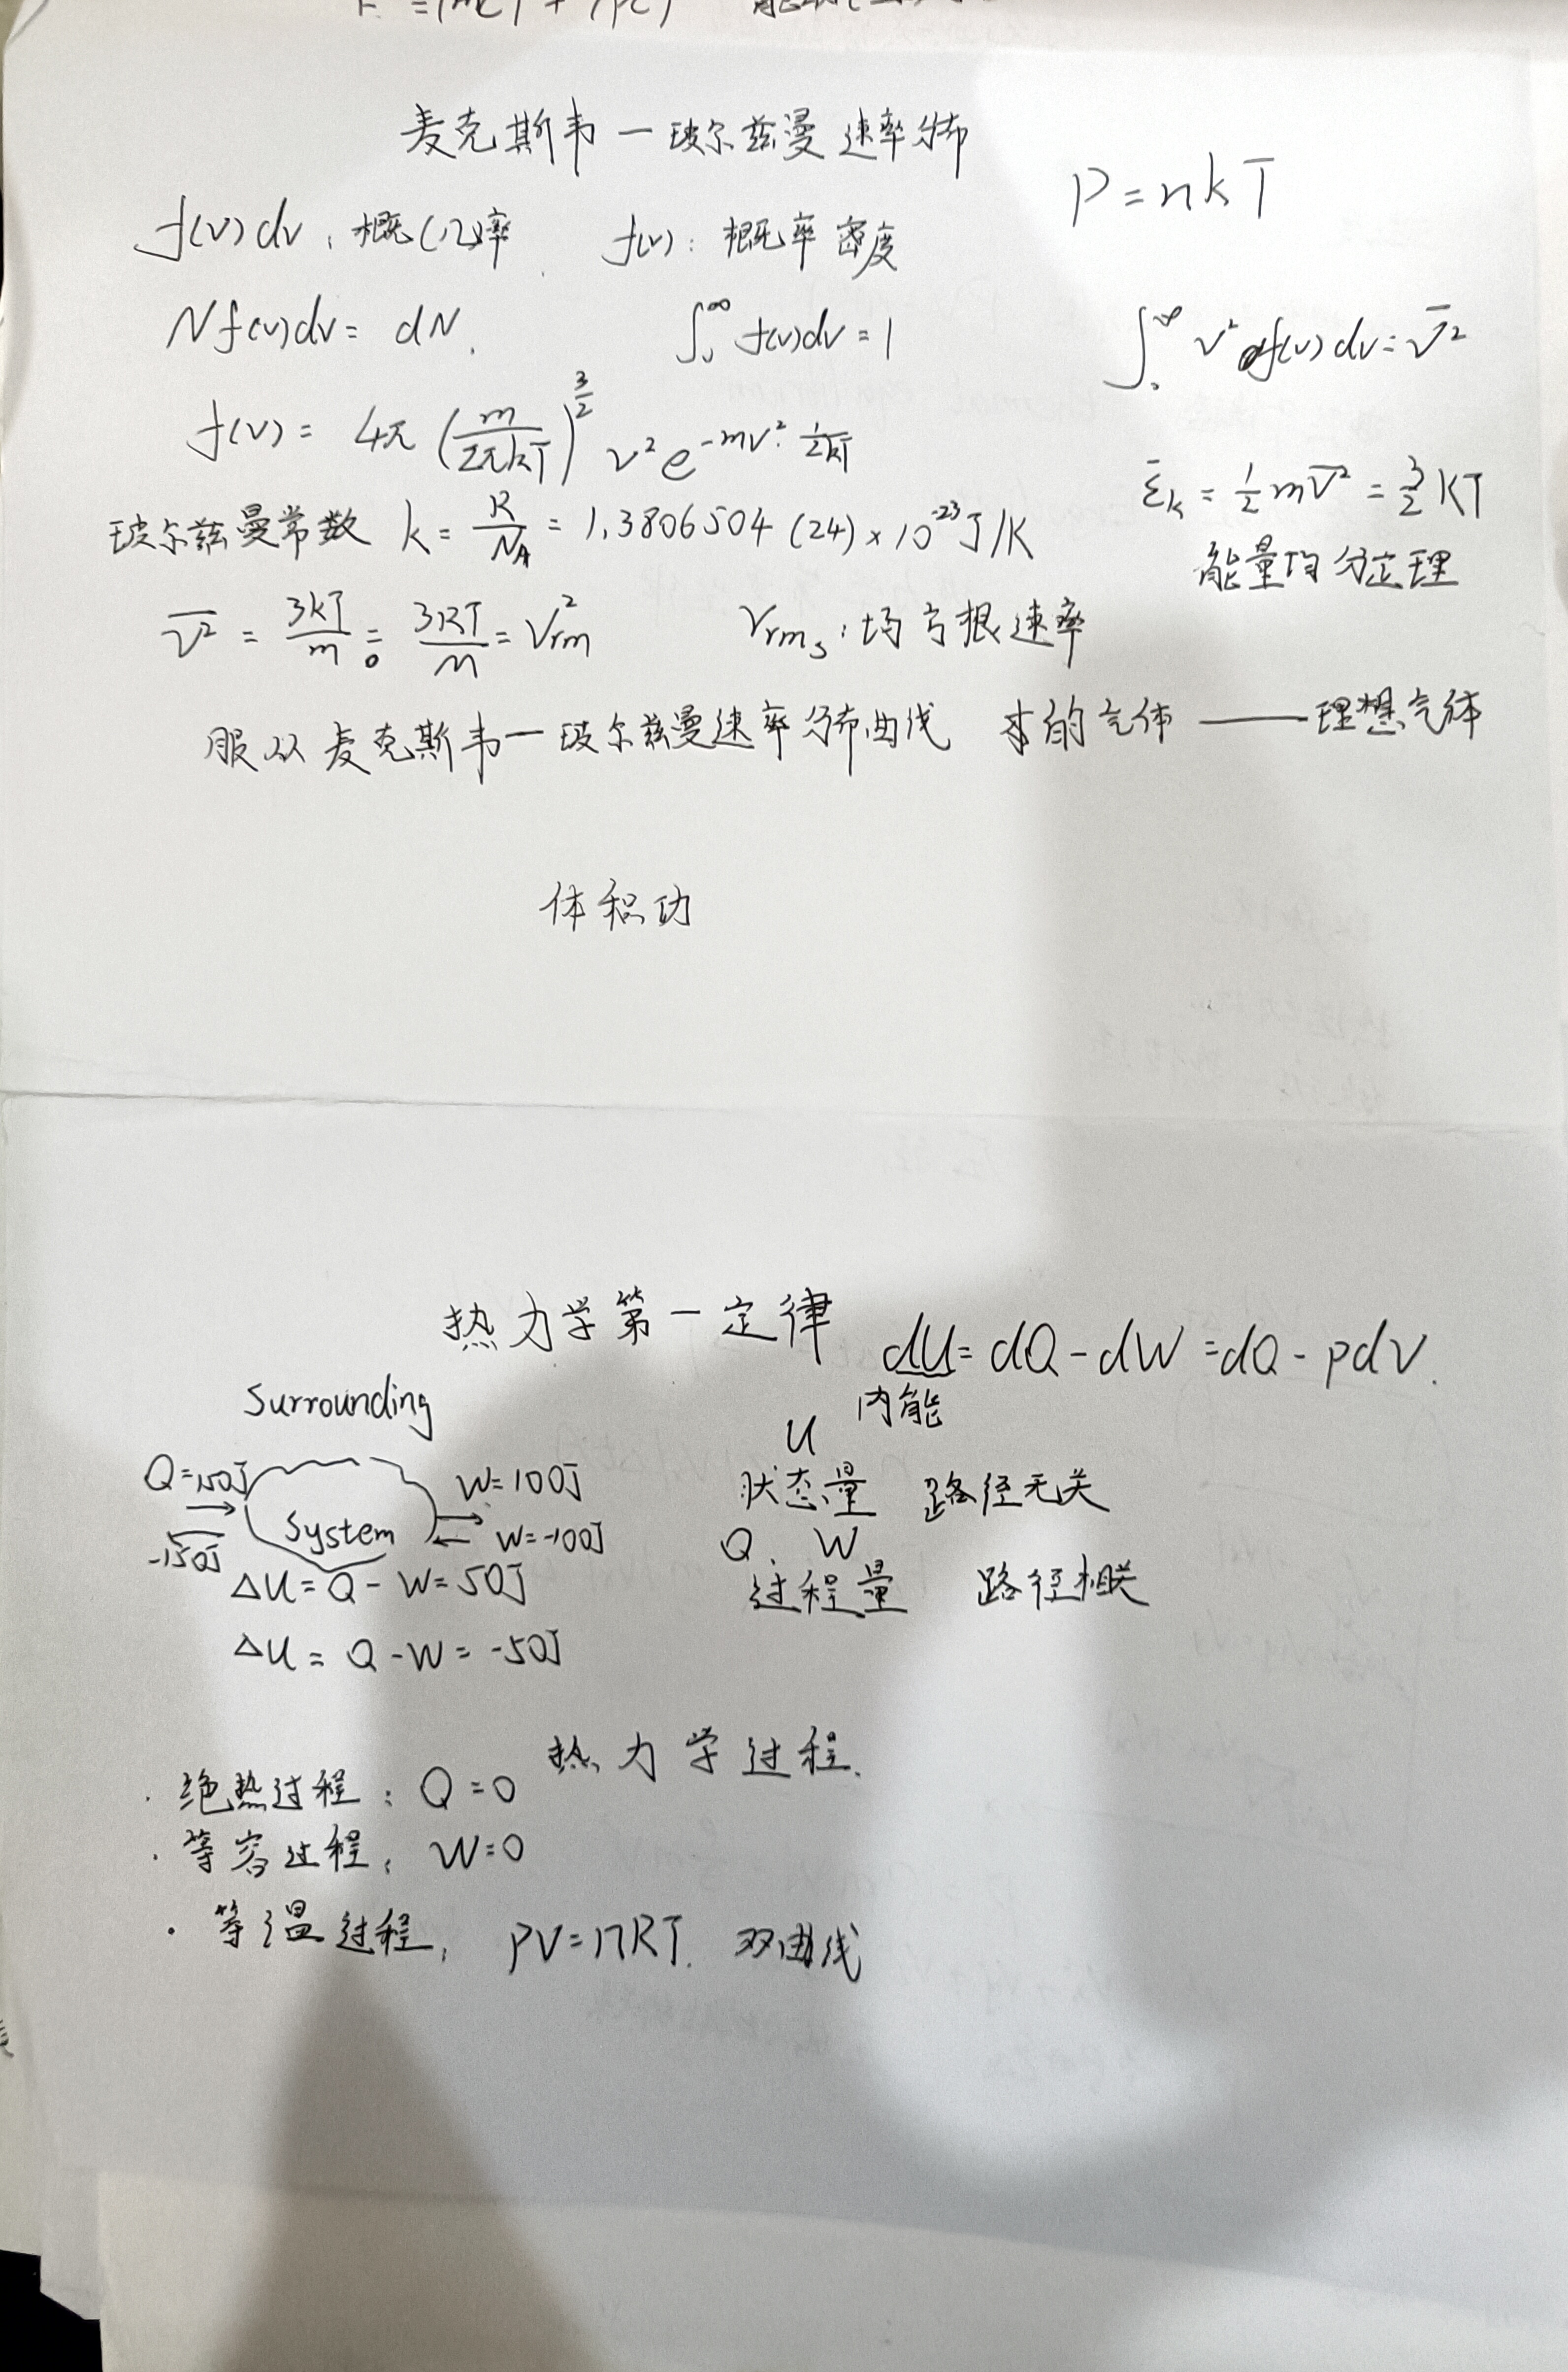 麦克斯韦—玻尔兹曼速率分布
P = nkT
f(v)dv: 概(几)率 f(v): 概率密度
Nf(v)dv = dN. ∫₀^∞ f(v)dv = 1
∫₀^∞ v² f(v)dv = v̅²
f(v) = 4π (m/2πkT)^(3/2) v² e^(-mv²·1/2kT)
ε̅k = 1/2 m v̅² = 3/2 kT
能量均分定理
玻尔兹曼常数 k = R/NA = 1.3806504(24)×10⁻²³ J/K
v̅² = 3kT/m = 3RT/M = Vrm² Vrms: 均方根速率
服从麦克斯韦—玻尔兹曼速率分布曲线 的气体 —— 理想气体
体积功
热力学第一定律 dU = dQ - dW = dQ - pdV.
内能
Surrounding
Q=150J W=100J
System
-150J W=-100J
ΔU = Q - W = 50J
ΔU = Q - W = -50J
U
状态量 路径无关
Q、W
过程量 路径相关
热力学过程.
· 绝热过程: Q=0
· 等容过程: W=0
· 等温过程: PV=nRT. 双曲线